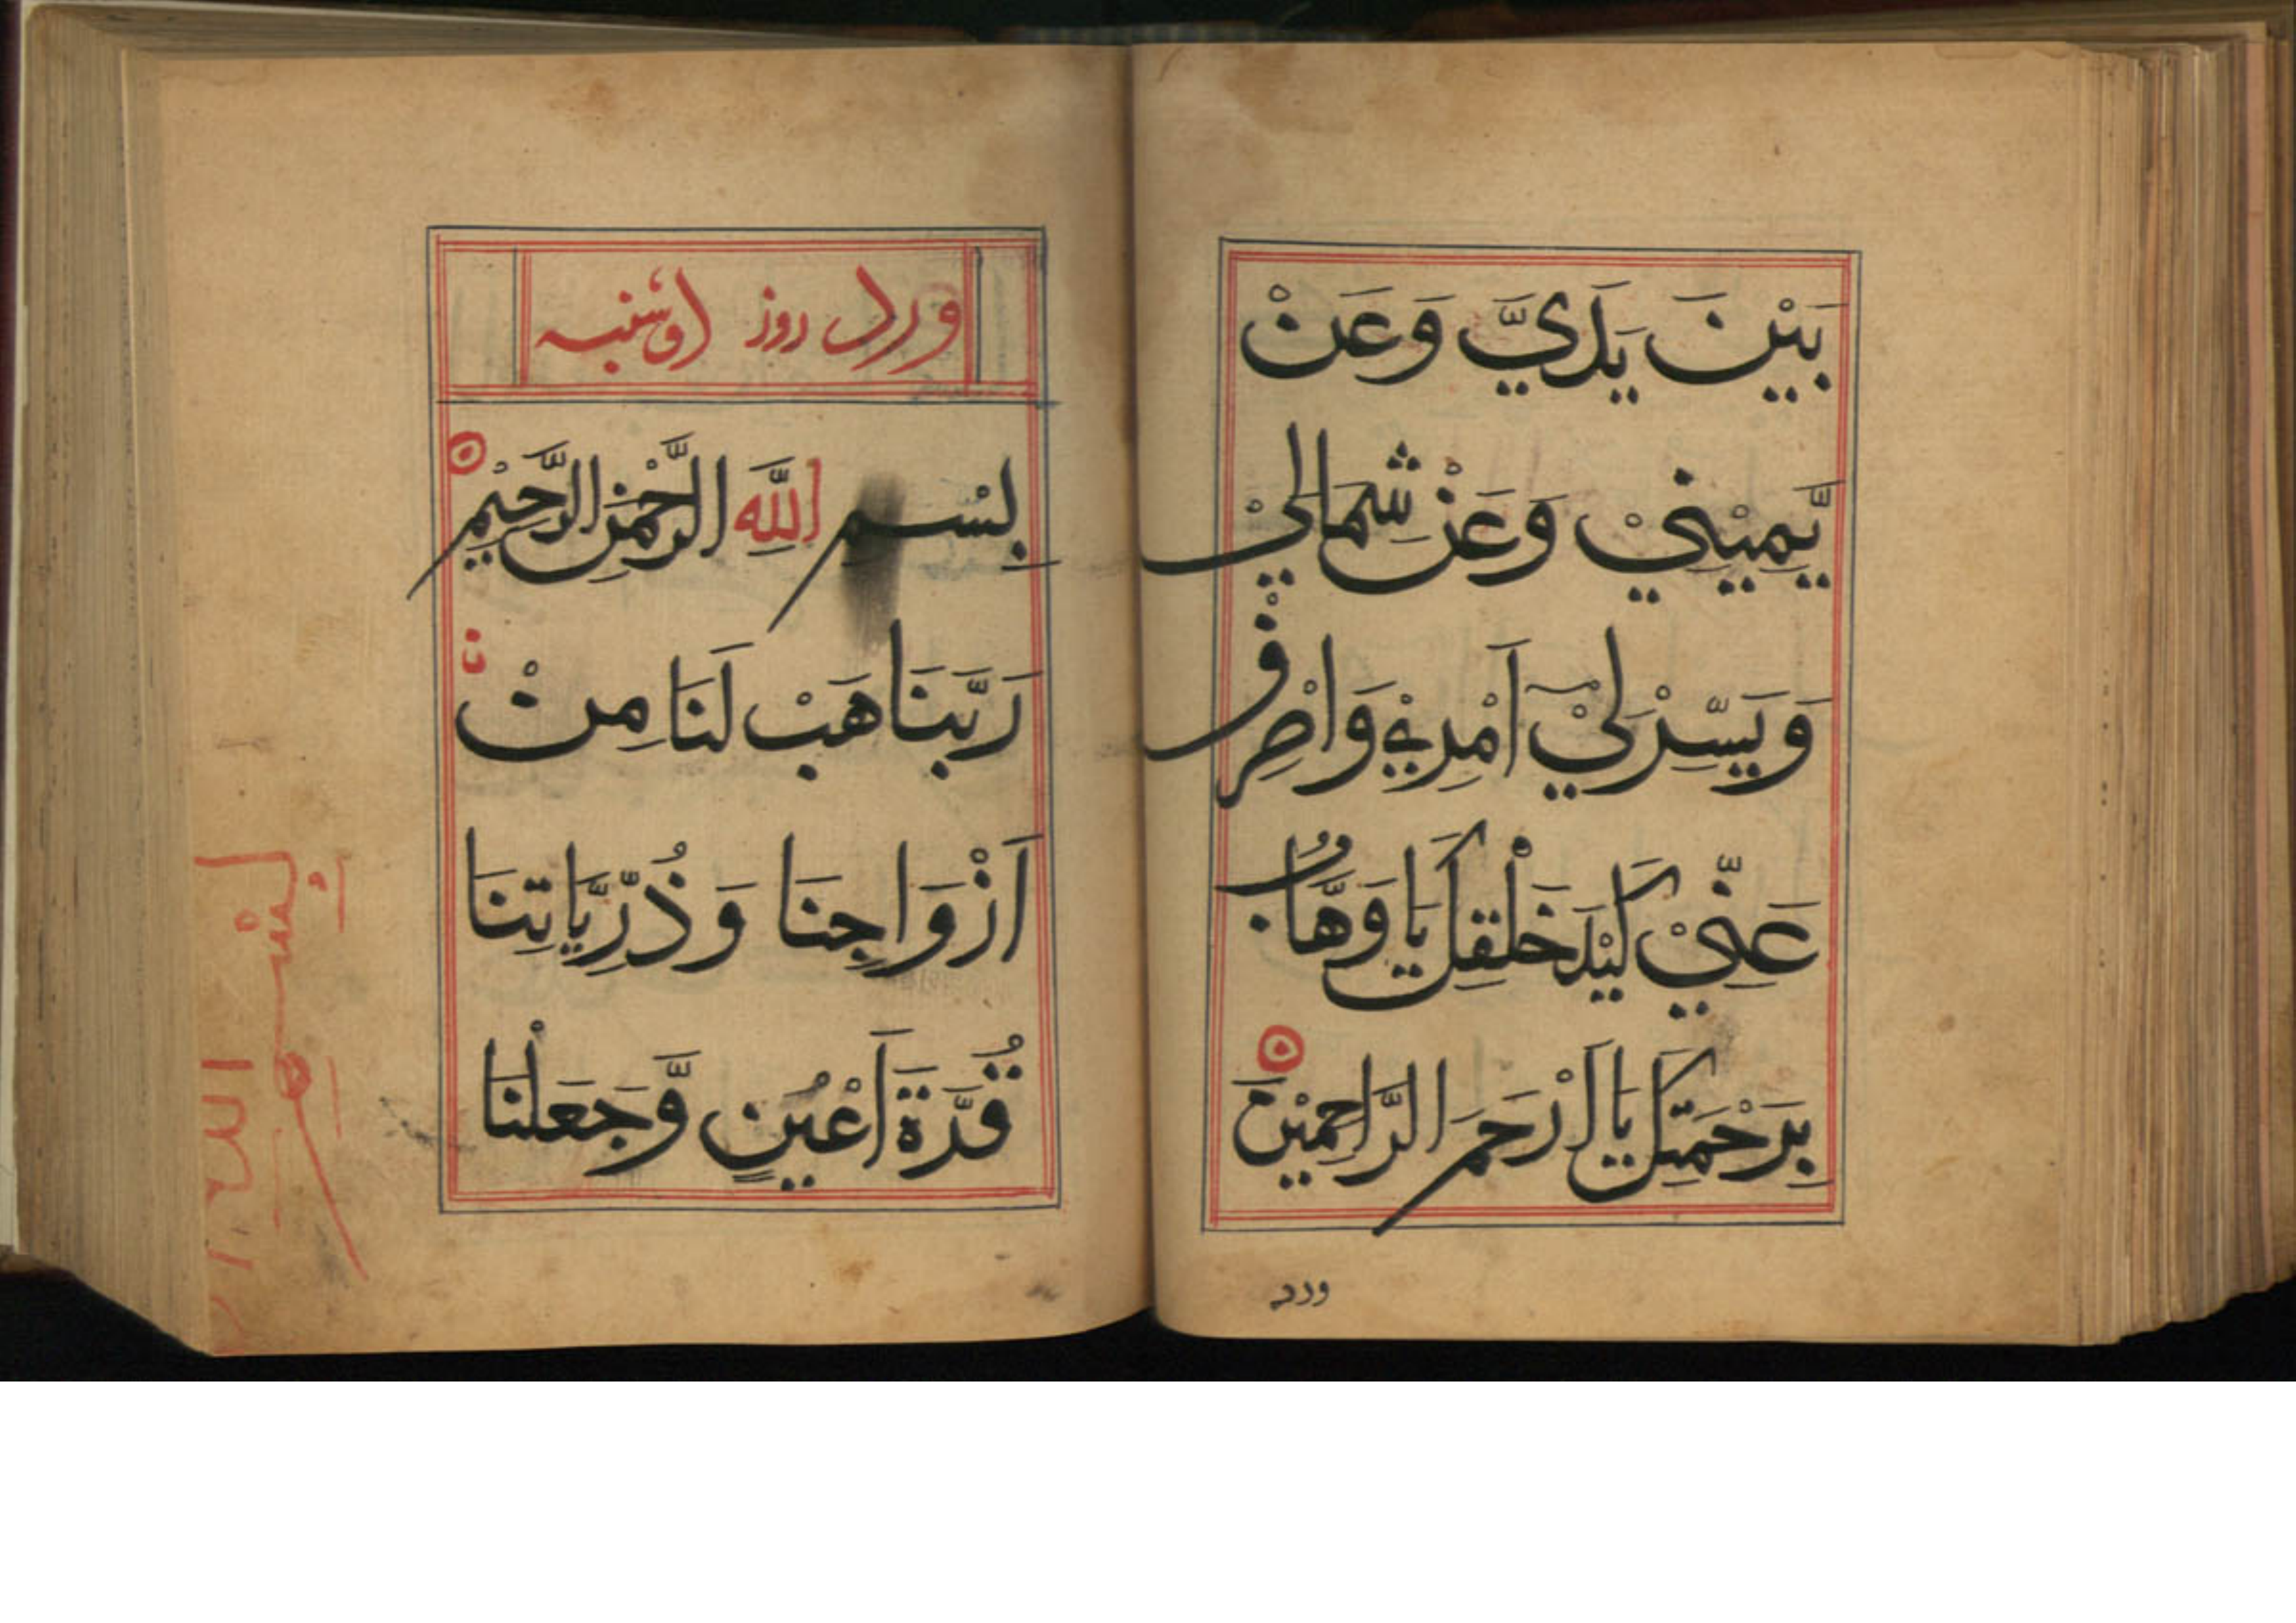 بَيْنَ يَدَيَّ وَعَنْ
يَّمِيْنِيْ وَعَنْ شِمَالِيْ
وَيَسِّرْ لِيْ اَمْرِيْ وَاصْرِفْ
عَنِّيْ كَيْدَ خَلْقِكَ يَا وَهَّابُ
بِرَحْمَتِكَ يَا اَرْحَمَ الرَّاحِمِيْنَ
ورد
ورد روز
بِسْمِ اللَّهِ الرَّحْمٰنِ الرَّحِيْمِ
رَبَّنَا هَبْ لَنَا مِنْ
اَزْوَاجِنَا وَذُرِّيَّاتِنَا
قُرَّةَ اَعْيُنٍ وَّجَعَلْنَا
بِسْمِ
الله